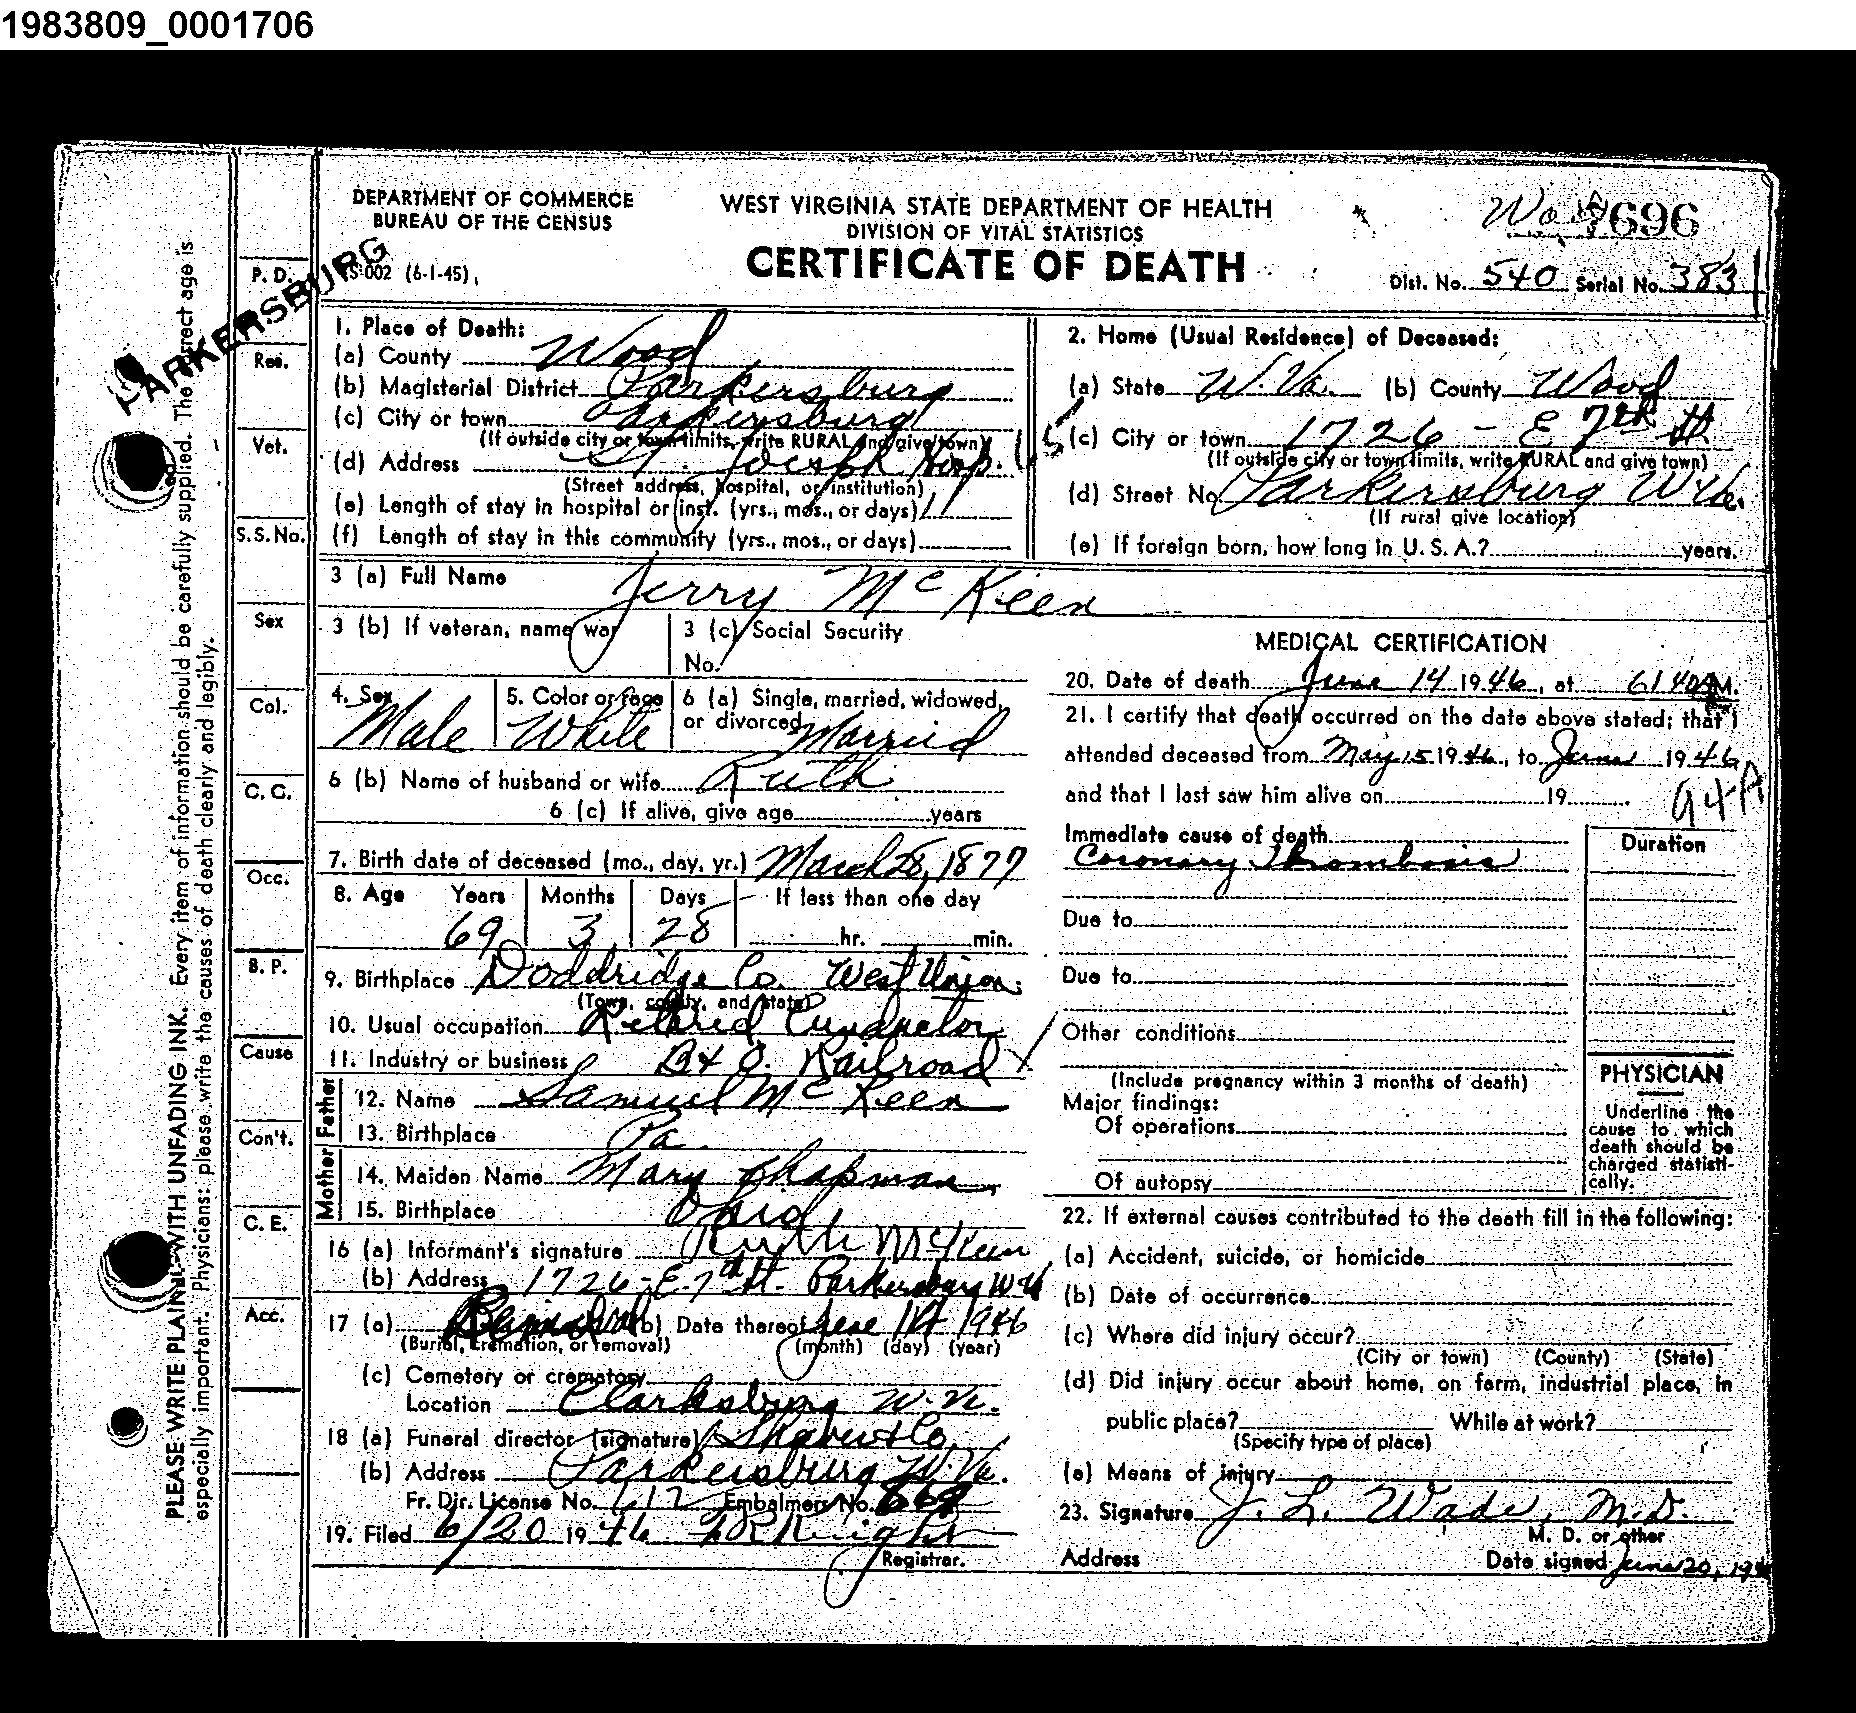 1983809_0001706
DEPARTMENT OF COMMERCE
BUREAU OF THE CENSUS
WEST VIRGINIA STATE DEPARTMENT OF HEALTH
DIVISION OF VITAL STATISTICS
CERTIFICATE OF DEATH
7696
PARKERSBURG
S-002 (6-1-45)
Dist. No. 540 Serial No. 383
PLEASE WRITE PLAINLY WITH UNFADING INK. Every item of information should be carefully supplied. The correct age is
especially important. Physicians: please write the causes of death clearly and legibly.
P. D.
Res.
Vet.
S.S. No.
Sex
Col.
C. G.
Occ.
B. P.
Cause
Con't.
C. E.
Acc.
1. Place of Death:
(a) County Wood
(b) Magisterial District Parkersburg
(c) City or town Parkersburg
(If outside city or town limits, write RURAL and give town)
(d) Address St. Joseph Hosp.
(Street address, hospital, or institution)
(e) Length of stay in hospital or inst. (yrs., mos., or days)
(f) Length of stay in this community (yrs., mos., or days)
2. Home (Usual Residence) of Deceased:
(a) State W. Va. (b) County Wood
(c) City or town 1726 - E 7th St
(If outside city or town limits, write RURAL and give town)
(d) Street No Parkersburg W Va.
(If rural give location)
(e) If foreign born, how long in U. S. A.? years.
3 (a) Full Name Jerry McKeen
3 (b) If veteran, name war
3 (c) Social Security
No.
4. Sex Male
5. Color or race White
6 (a) Single, married, widowed,
or divorced Married
6 (b) Name of husband or wife Ruth
6 (c) If alive, give age years
7. Birth date of deceased (mo., day, yr.) March 28, 1877
8. Age Years Months Days If less than one day
69 3 28 hr. min.
9. Birthplace Doddridge Co. West Union
(Town, county, and state)
10. Usual occupation Retired Conductor
11. Industry or business B & O. Railroad
Father
12. Name Samuel McKeen
13. Birthplace Pa.
Mother
14. Maiden Name Mary Chapman
15. Birthplace Ohio
16 (a) Informant's signature Ruth McKeen
(b) Address 1726 - E. 7th St. Parkersburg W Va
17 (a) (b) Date thereof June 14 1946
(Burial, cremation, or removal) (month) (day) (year)
(c) Cemetery or crematory
Location Clarksburg W. Va.
18 (a) Funeral director (signature)
(b) Address Parkersburg W. Va.
Fr. Dir. License No. 612 Embalmers No.
19. Filed 6/20 1946 Knight
Registrar.
MEDICAL CERTIFICATION
20. Date of death June 14 1946, at 6:40 A M.
21. I certify that death occurred on the date above stated; that I
attended deceased from May 15 1946, to June 1946
and that I last saw him alive on 19
94A
Immediate cause of death
Coronary Thrombosis
Duration
Due to
Due to
Other conditions
(Include pregnancy within 3 months of death)
Major findings:
Of operations
Of autopsy
PHYSICIAN
Underline the
cause to which
death should be
charged statisti-
cally.
22. If external causes contributed to the death fill in the following:
(a) Accident, suicide, or homicide
(b) Date of occurrence
(c) Where did injury occur?
(City or town) (County) (State)
(d) Did injury occur about home, on farm, industrial place, in
public place? While at work?
(Specify type of place)
(e) Means of injury
23. Signature J. L. Wade, M.D.
M. D. or other
Address Date signed June 20, 194